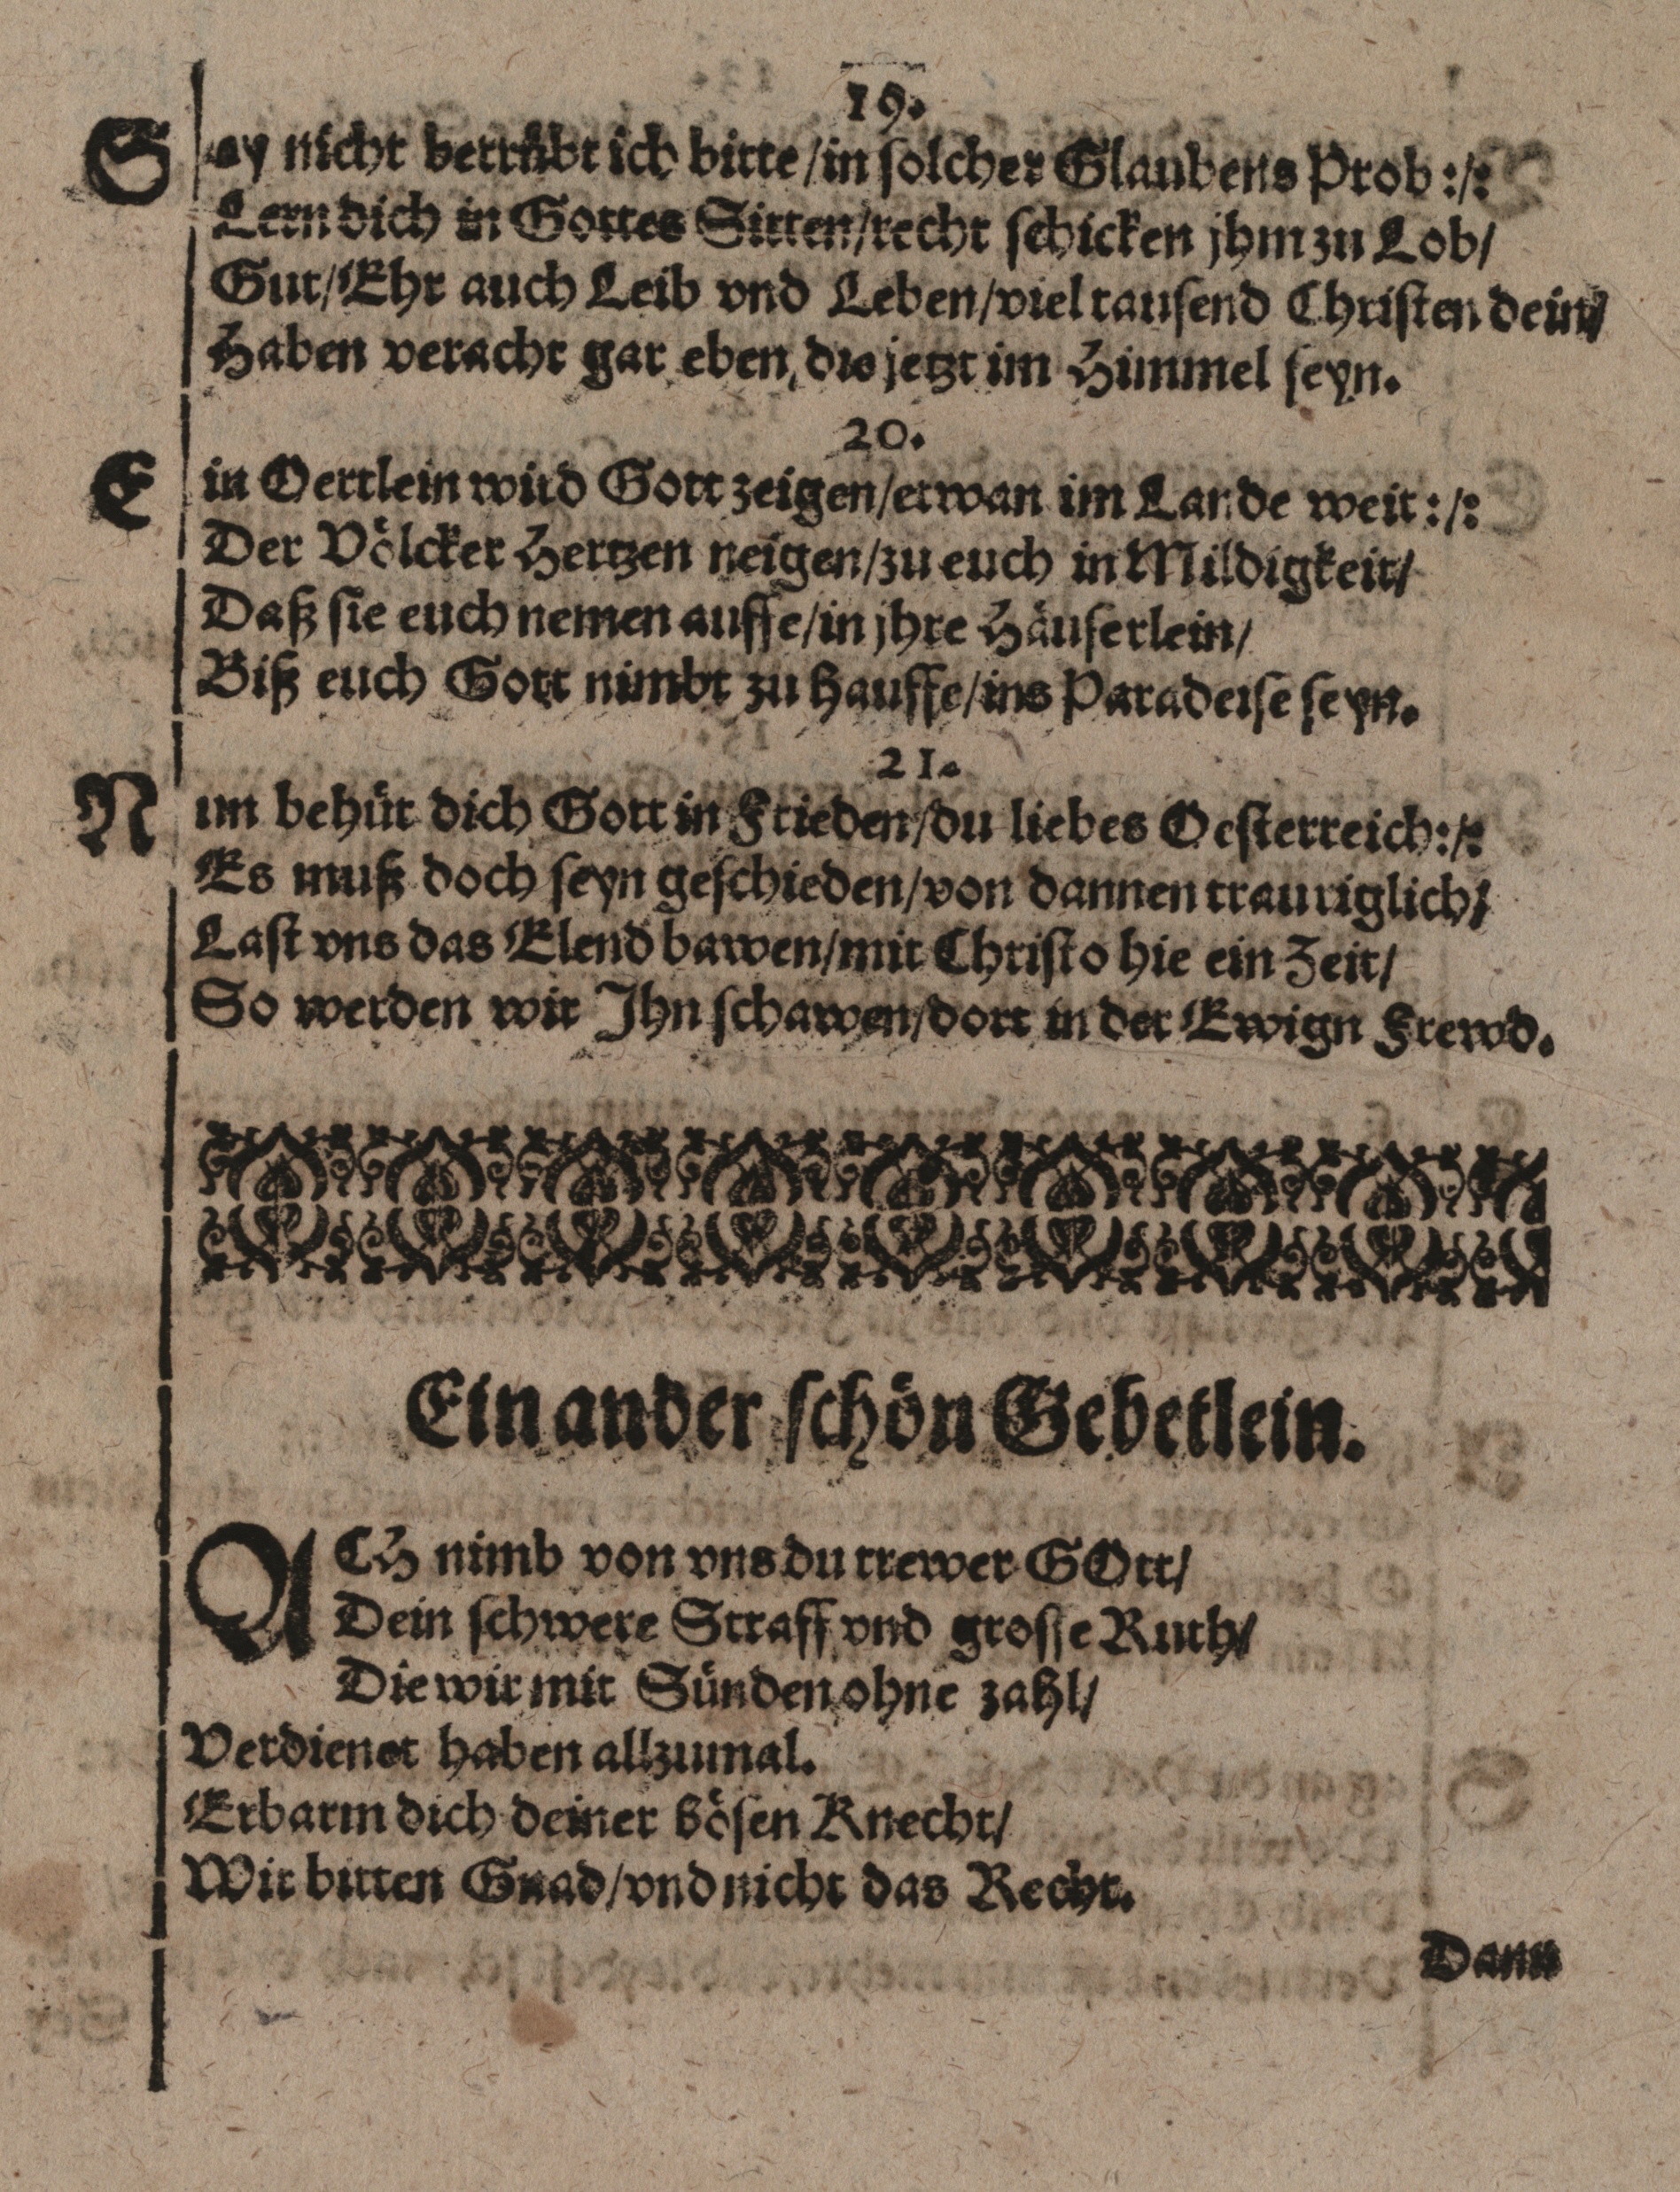 19.
Sey nicht betrübt ich bitte/in solcher Glaubens Prob:/:
Lern dich in Gottes Sitten/recht schicken jhm zu Lob/
Gut/Ehr auch Leib vnd Leben/viel tausend Christen dein/
Haben veracht gar eben, die jetzt im Himmel seyn.
20.
Ein Oertlein wird Gott zeigen/etwan im Lande weit:/:
Der Völcker Hertzen neigen/zu euch in Mildigkeit/
Daß sie euch nemen auffe/in jhre Häuserlein/
Biß euch Gott nimbt zu Hauffe/ins Paradeise seyn.
21.
Nun behüt dich Gott in Frieden/du liebes Oesterreich:/:
Es muß doch seyn geschieden/von dannen trauriglich/
Last vns das Elend bawen/mit Christo hie ein Zeit/
So werden wir Ihn schawen/dort in der Ewign Frewd.
Ein ander schön Gebetlein.
ACH nimb von vns du trewer GOtt/
Dein schwere Straff vnd grosse Ruth/
Die wir mit Sünden ohne zahl/
Verdienet haben allzumal.
Erbarm dich deiner bösen Knecht/
Wir bitten Gnad/vnd nicht das Recht.
Dann